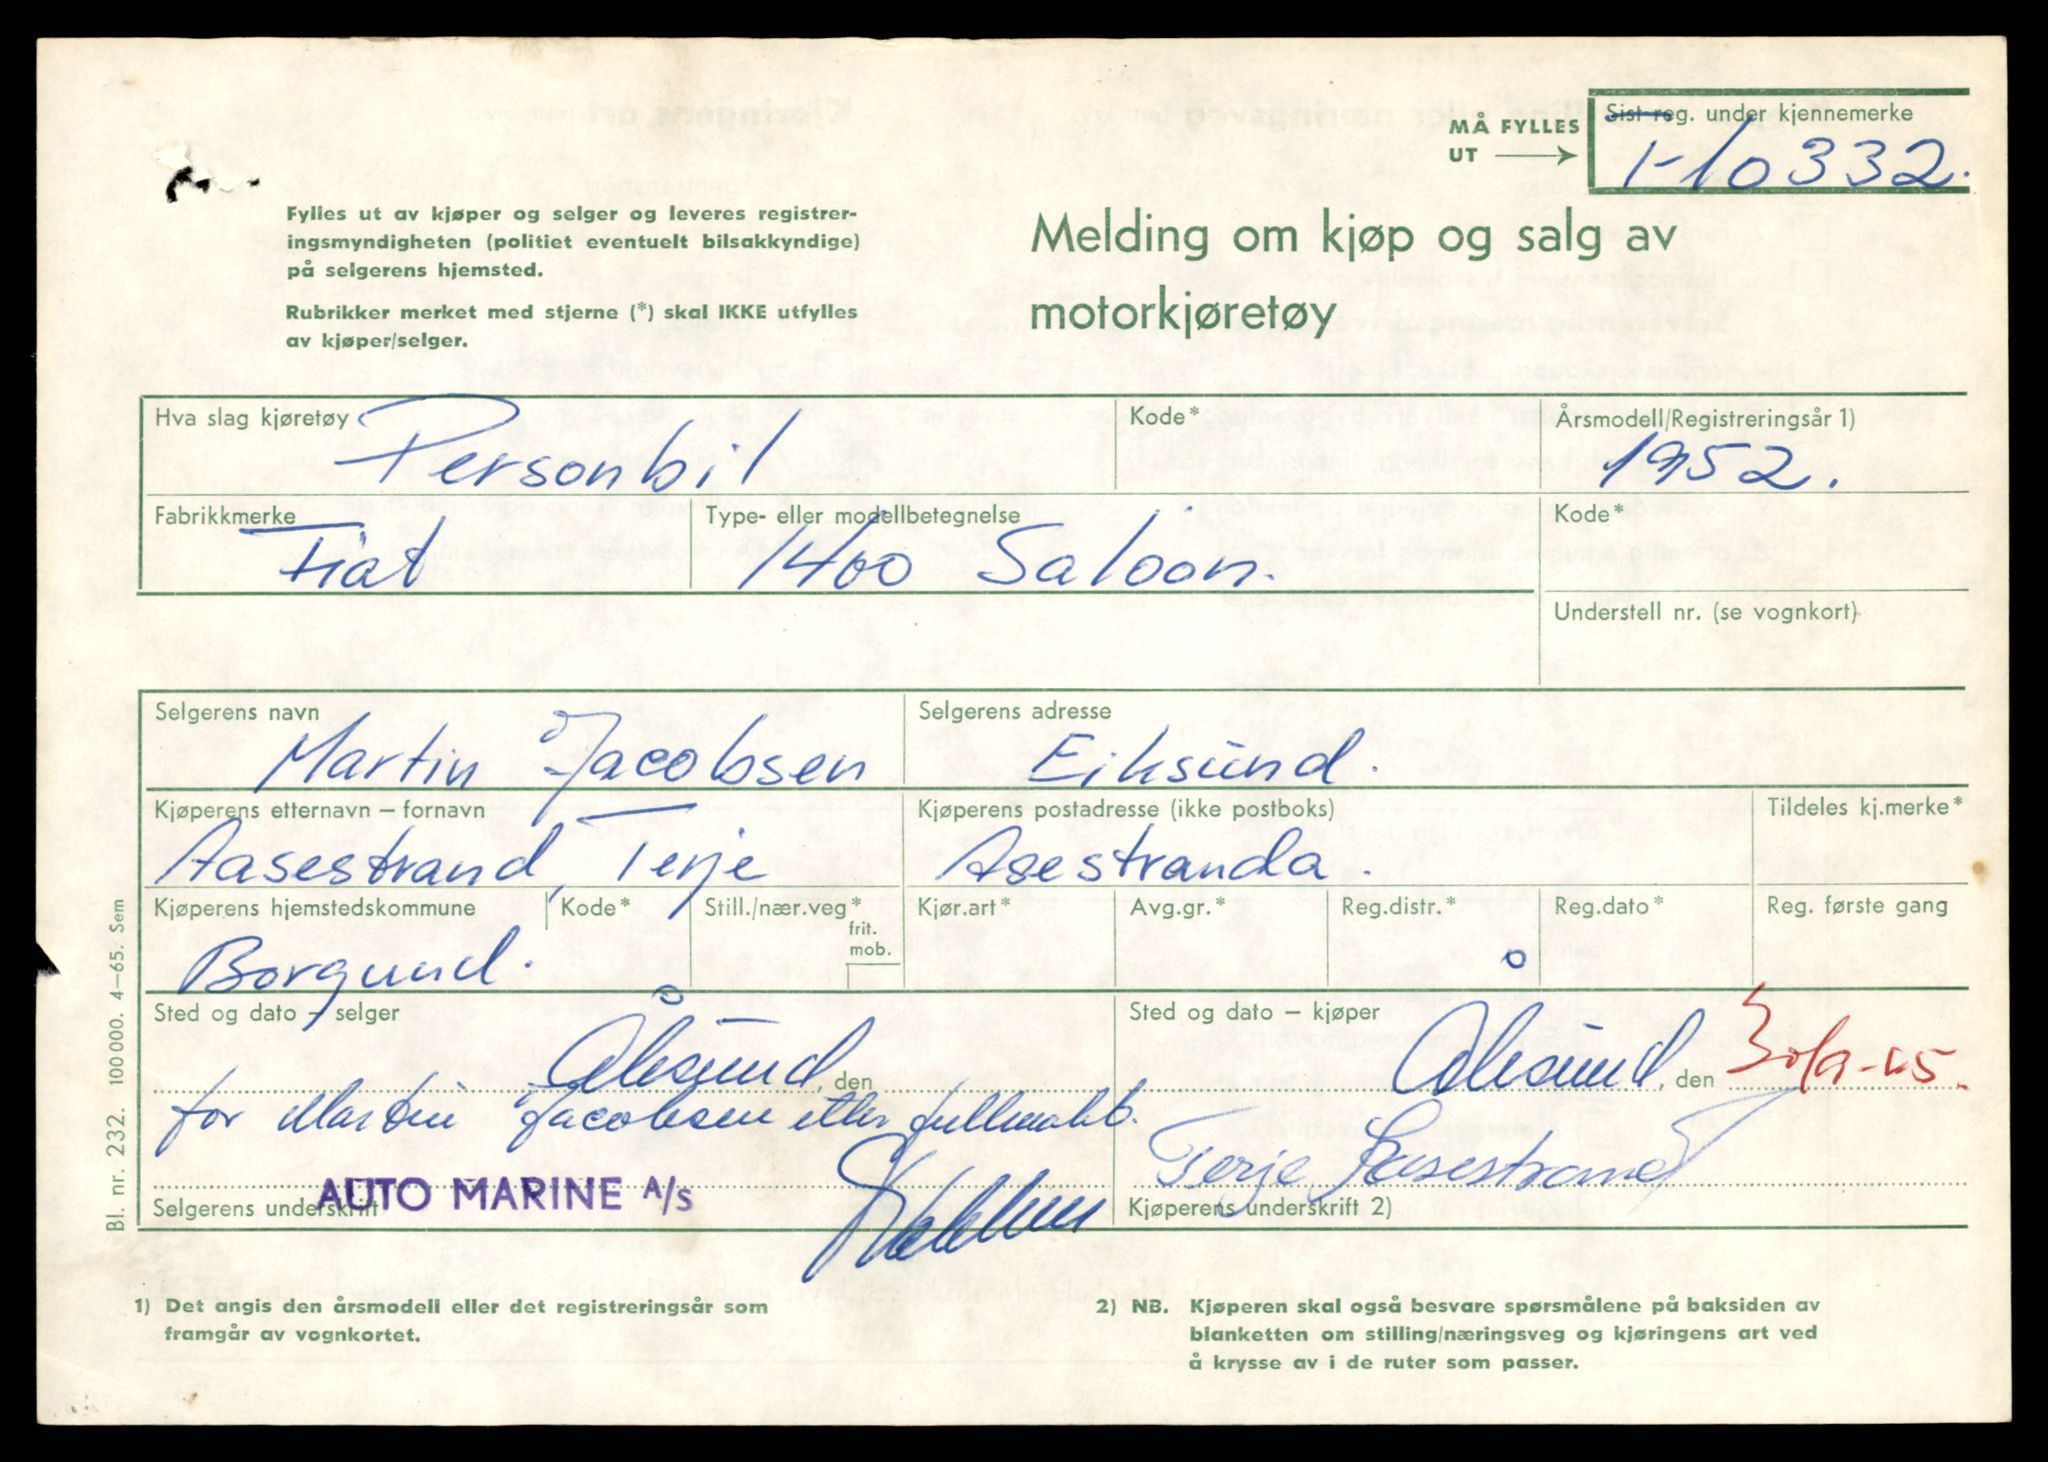 MÅ FYLLES UT
Sist reg. under kjennemerke
T-10332.
Fylles ut av kjøper og selger og leveres registrer-
ingsmyndigheten (politiet eventuelt bilsakkyndige)
på selgerens hjemsted.
Rubrikker merket med stjerne (*) skal IKKE utfylles
av kjøper/selger.
Melding om kjøp og salg av
motorkjøretøy
Hva slag kjøretøy
Kode*
Årsmodell/Registreringsår 1)
Personbil
1952.
Fabrikkmerke
Type- eller modellbetegnelse
Kode*
Fiat
1400 Saloon.
Understell nr. (se vognkort)
Selgerens navn
Selgerens adresse
Martin Jacobsen
Eiksund.
Kjøperens etternavn – fornavn
Kjøperens postadresse (ikke postboks)
Tildeles kj.merke*
Aasestrand, Terje
Asestranda.
Kjøperens hjemstedskommune
Kode*
Still./nær.veg*
frit.
mob.
Kjør.art*
Avg.gr.*
Reg.distr.*
Reg.dato*
Reg. første gang
Borgund.
Sted og dato – selger
Sted og dato – kjøper
Ålesund, den
Ålesund, den 30/9-65.
for Martin Jacobsen etter fullmakt.
Terje Aasestrand
AUTO MARINE A/S
Selgerens underskrift
Kjøperens underskrift 2)
1) Det angis den årsmodell eller det registreringsår som
framgår av vognkortet.
2) NB. Kjøperen skal også besvare spørsmålene på baksiden av
blanketten om stilling/næringsveg og kjøringens art ved
å krysse av i de ruter som passer.
Bl. nr. 232. 100 000. 4–65. Sem